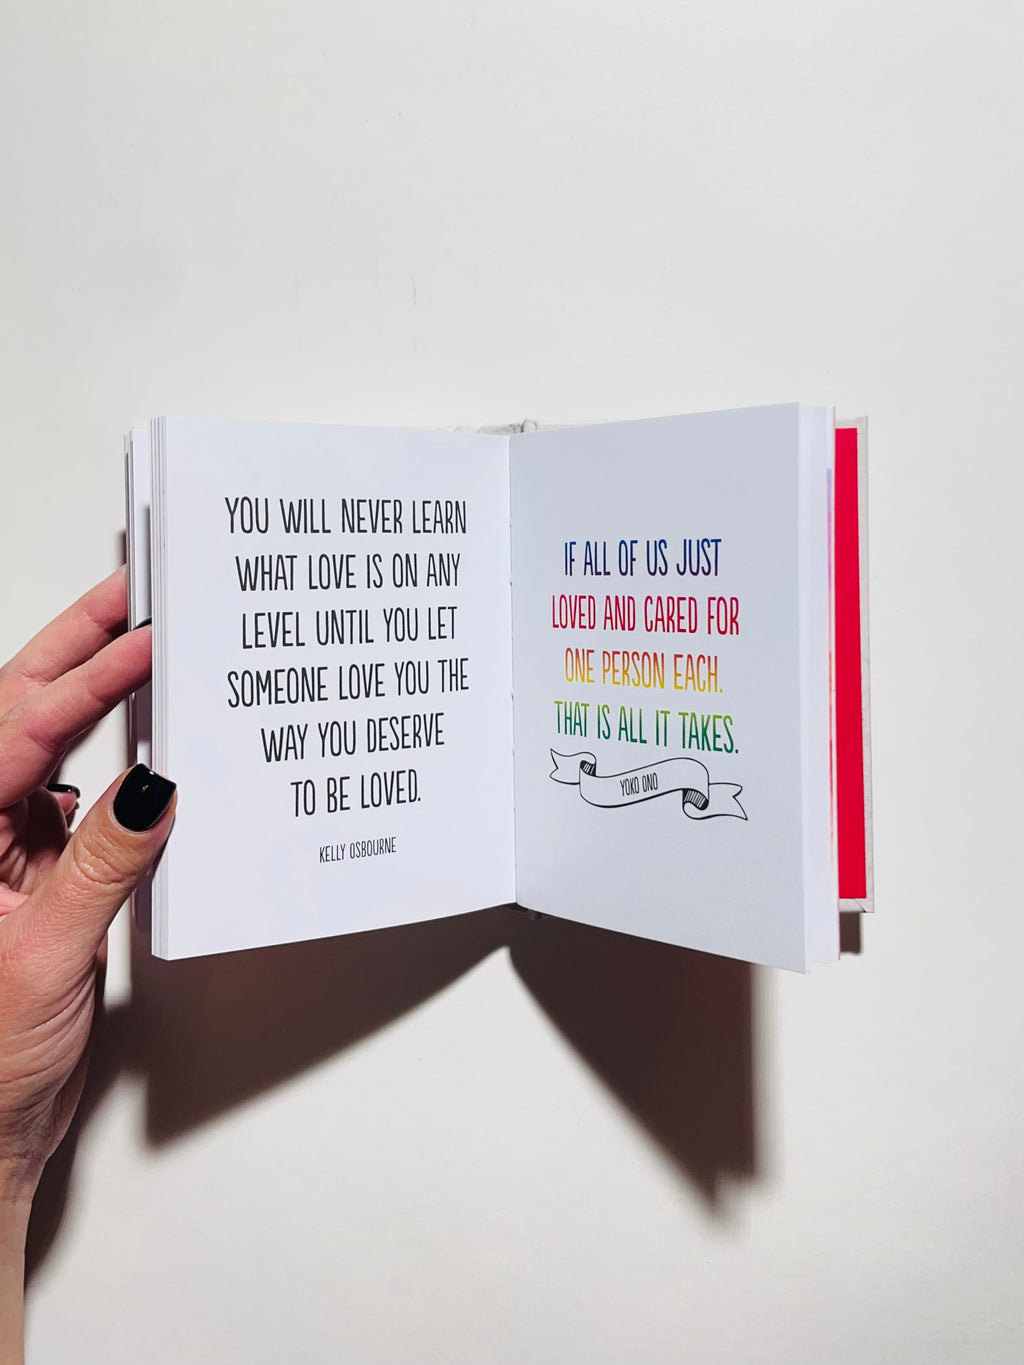 YOU WILL NEVER LEARN
WHAT LOVE IS ON ANY
LEVEL UNTIL YOU LET
SOMEONE LOVE YOU THE
WAY YOU DESERVE
TO BE LOVED.
KELLY OSBOURNE
IF ALL OF US JUST
LOVED AND CARED FOR
ONE PERSON EACH.
THAT IS ALL IT TAKES.
YOKO ONO